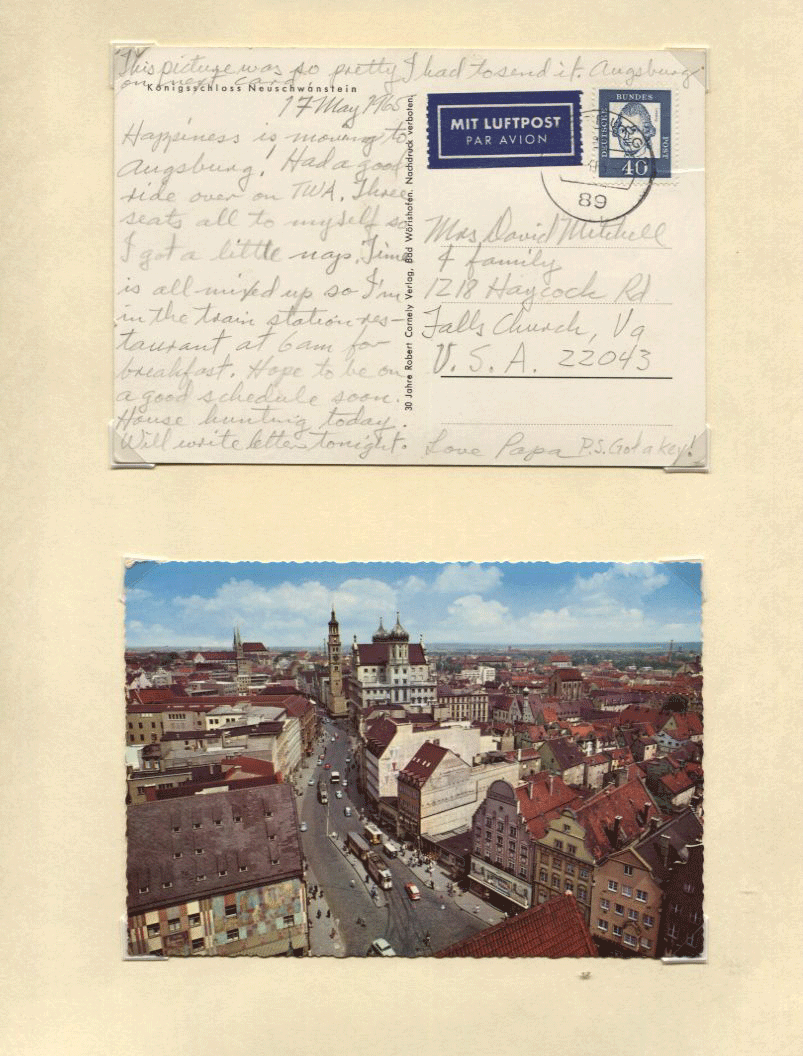 This picture was so pretty I had to send it. Augsburg
on next card.
Königsschloss Neuschwanstein
17 May 1965
Happiness is moving to
Augsburg! Had a good
ride over on TWA. Three
seats all to myself so
I got a little naps. Time
is all mixed up so I'm
in the train station res-
taurant at 6am for
breakfast. Hope to be on
a good schedule soon.
House hunting today.
Will write letter tonight.
30 Jahre Robert Cornely Verlag, Bad Wörishofen. Nachdruck verboten.
MIT LUFTPOST
PAR AVION
DEUTSCHE BUNDES POST
40
89
Mrs David Mitchell
& family
1218 Haycock Rd
Falls Church, Va
U.S.A. 22043
Love Papa P.S. Got a key!